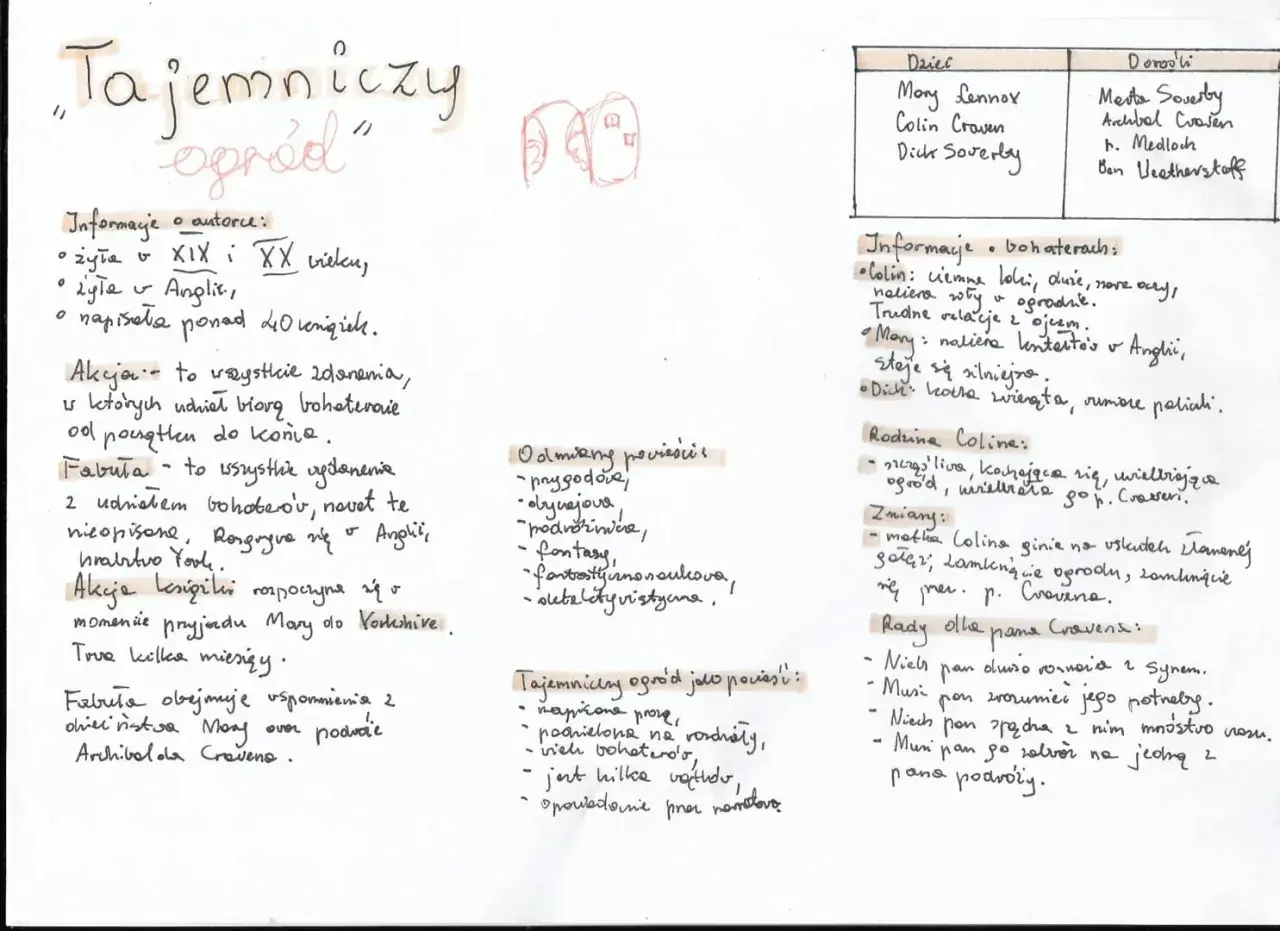 „Tajemniczy
ogród”
Informacje o autorce:
• żyła w XIX i XX wieku,
• żyła w Anglii,
• napisała ponad 40 książek.
Akcja - to wszystkie zdarzenia,
w których udział biorą bohaterowie
od początku do końca.
Fabuła - to wszystkie wydarzenia
z udziałem bohaterów, nawet te
nieopisane. Rozgrywa się w Anglii,
hrabstwo York.
Akcja książki rozpoczyna się w
momencie przyjazdu Mary do Yorkshire.
Trwa kilka miesięcy.
Fabuła obejmuje wspomnienia z
dzieciństwa Mary oraz podróże
Archibalda Cravena.
Odmiany powieści:
- przygodowa,
- obyczajowa,
- podróżnicza,
- fantasy,
- fantastycznonaukowa,
- detektywistyczna.
Tajemniczy ogród jako powieść:
- napisana prozą,
- podzielona na rozdziały,
- wielu bohaterów,
- jest kilka wątków,
- opowiadanie przez narratora.
Dzieci Dorośli
Mary Lennox Marta Soverby
Colin Craven Archibal Craven
Dick Soverby p. Medloch
Ben Weatherstaff
Informacje o bohaterach:
• Colin: ciemne loki, duże, szare oczy,
nabiera siły w ogrodzie.
Trudne relacje z ojcem.
• Mary: nabiera kształtów w Anglii,
staje się silniejsza.
• Dick: kocha zwierzęta, rumiane policzki.
Rodzina Colina:
- szczęśliwa, kochająca się, uwielbiająca
ogród, uwielbiała go p. Craven.
Zmiany:
- matka Colina ginie na skutek złamanej
gałęzi, zamknięcie ogrodu, zamknięcie
się przez p. Cravena.
Rady dla pana Cravena:
- Niech pan dużo rozmawia z synem.
- Musi pan zrozumieć jego potrzeby.
- Niech pan spędza z nim mnóstwo czasu.
- Musi pan go zabrać na jedną z
pana podróży.